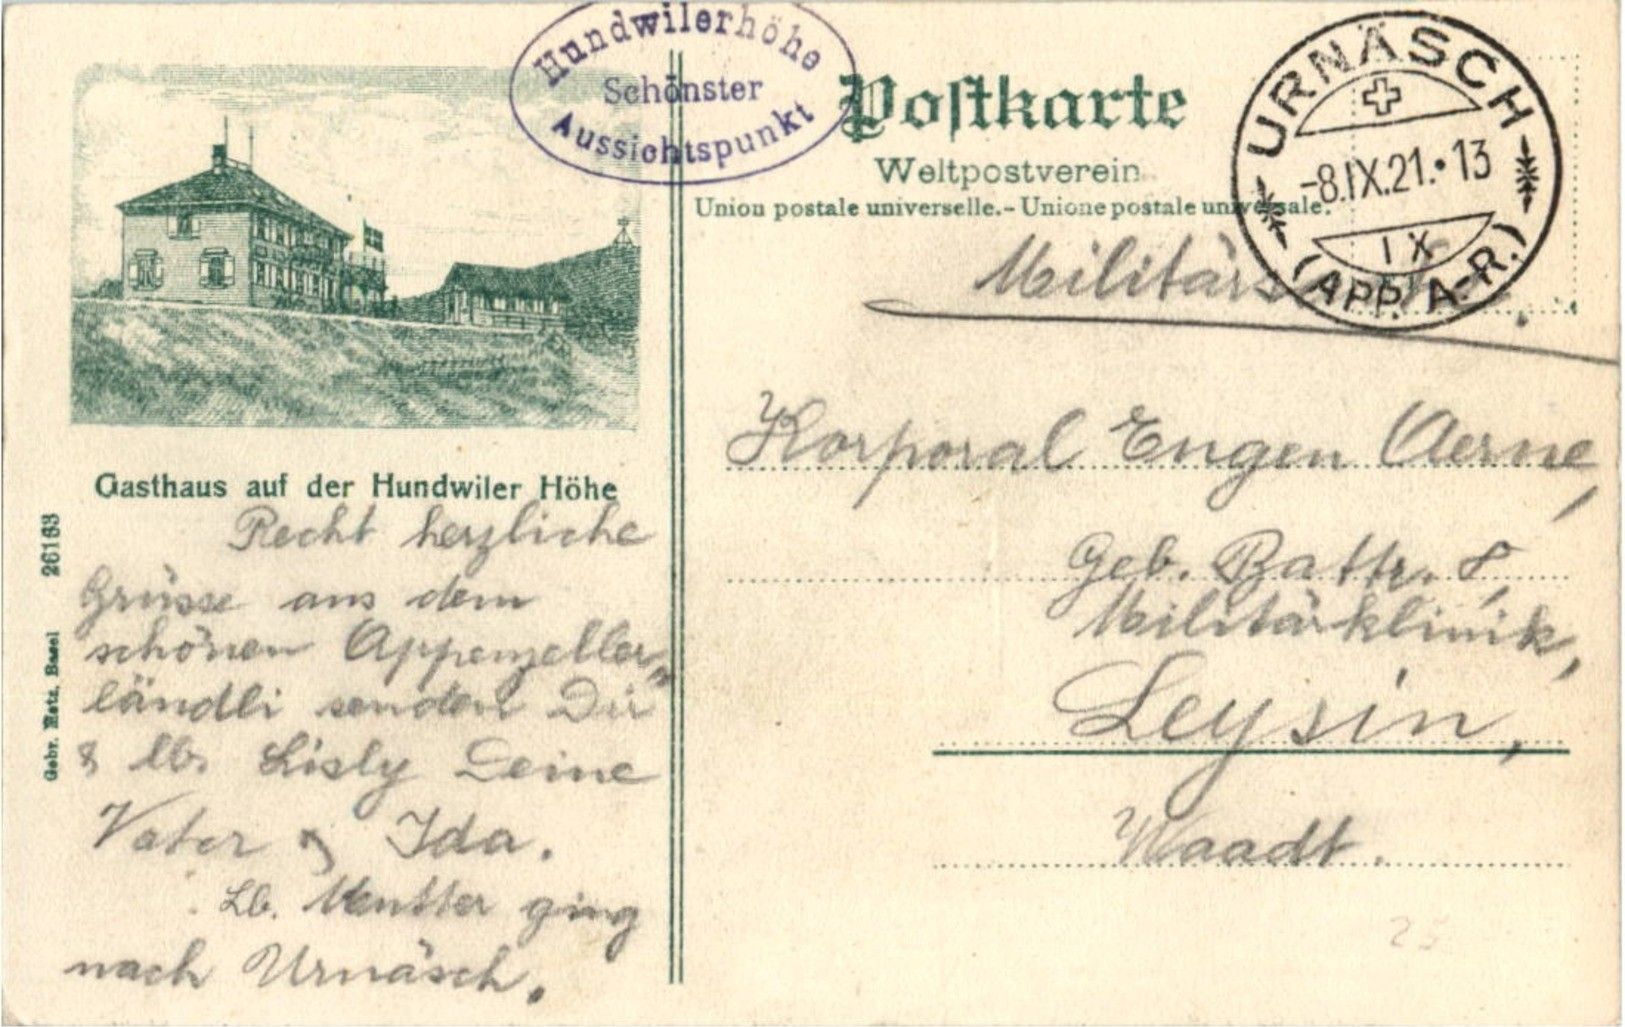 Hundwilerhöhe
Schönster
Aussichtspunkt
Postkarte
Weltpostverein
Union postale universelle. - Unione postale universale.
URNÄSCH
-8.IX.21.•13
IX
(APP. A.-R.)
Militärs
Korporal Eugen Aerne,
Geb. Battr. 8,
Militärklinik,
Leysin,
Waadt.
25
Gasthaus auf der Hundwiler Höhe
Recht herzliche
Grüsse aus dem
schönen Appenzeller-
ländli senden Dir
& lb. Lisly Deine
Vater & Ida.
Lb. Mutter ging
nach Urnäsch.
Gebr. Metz, Basel 26163